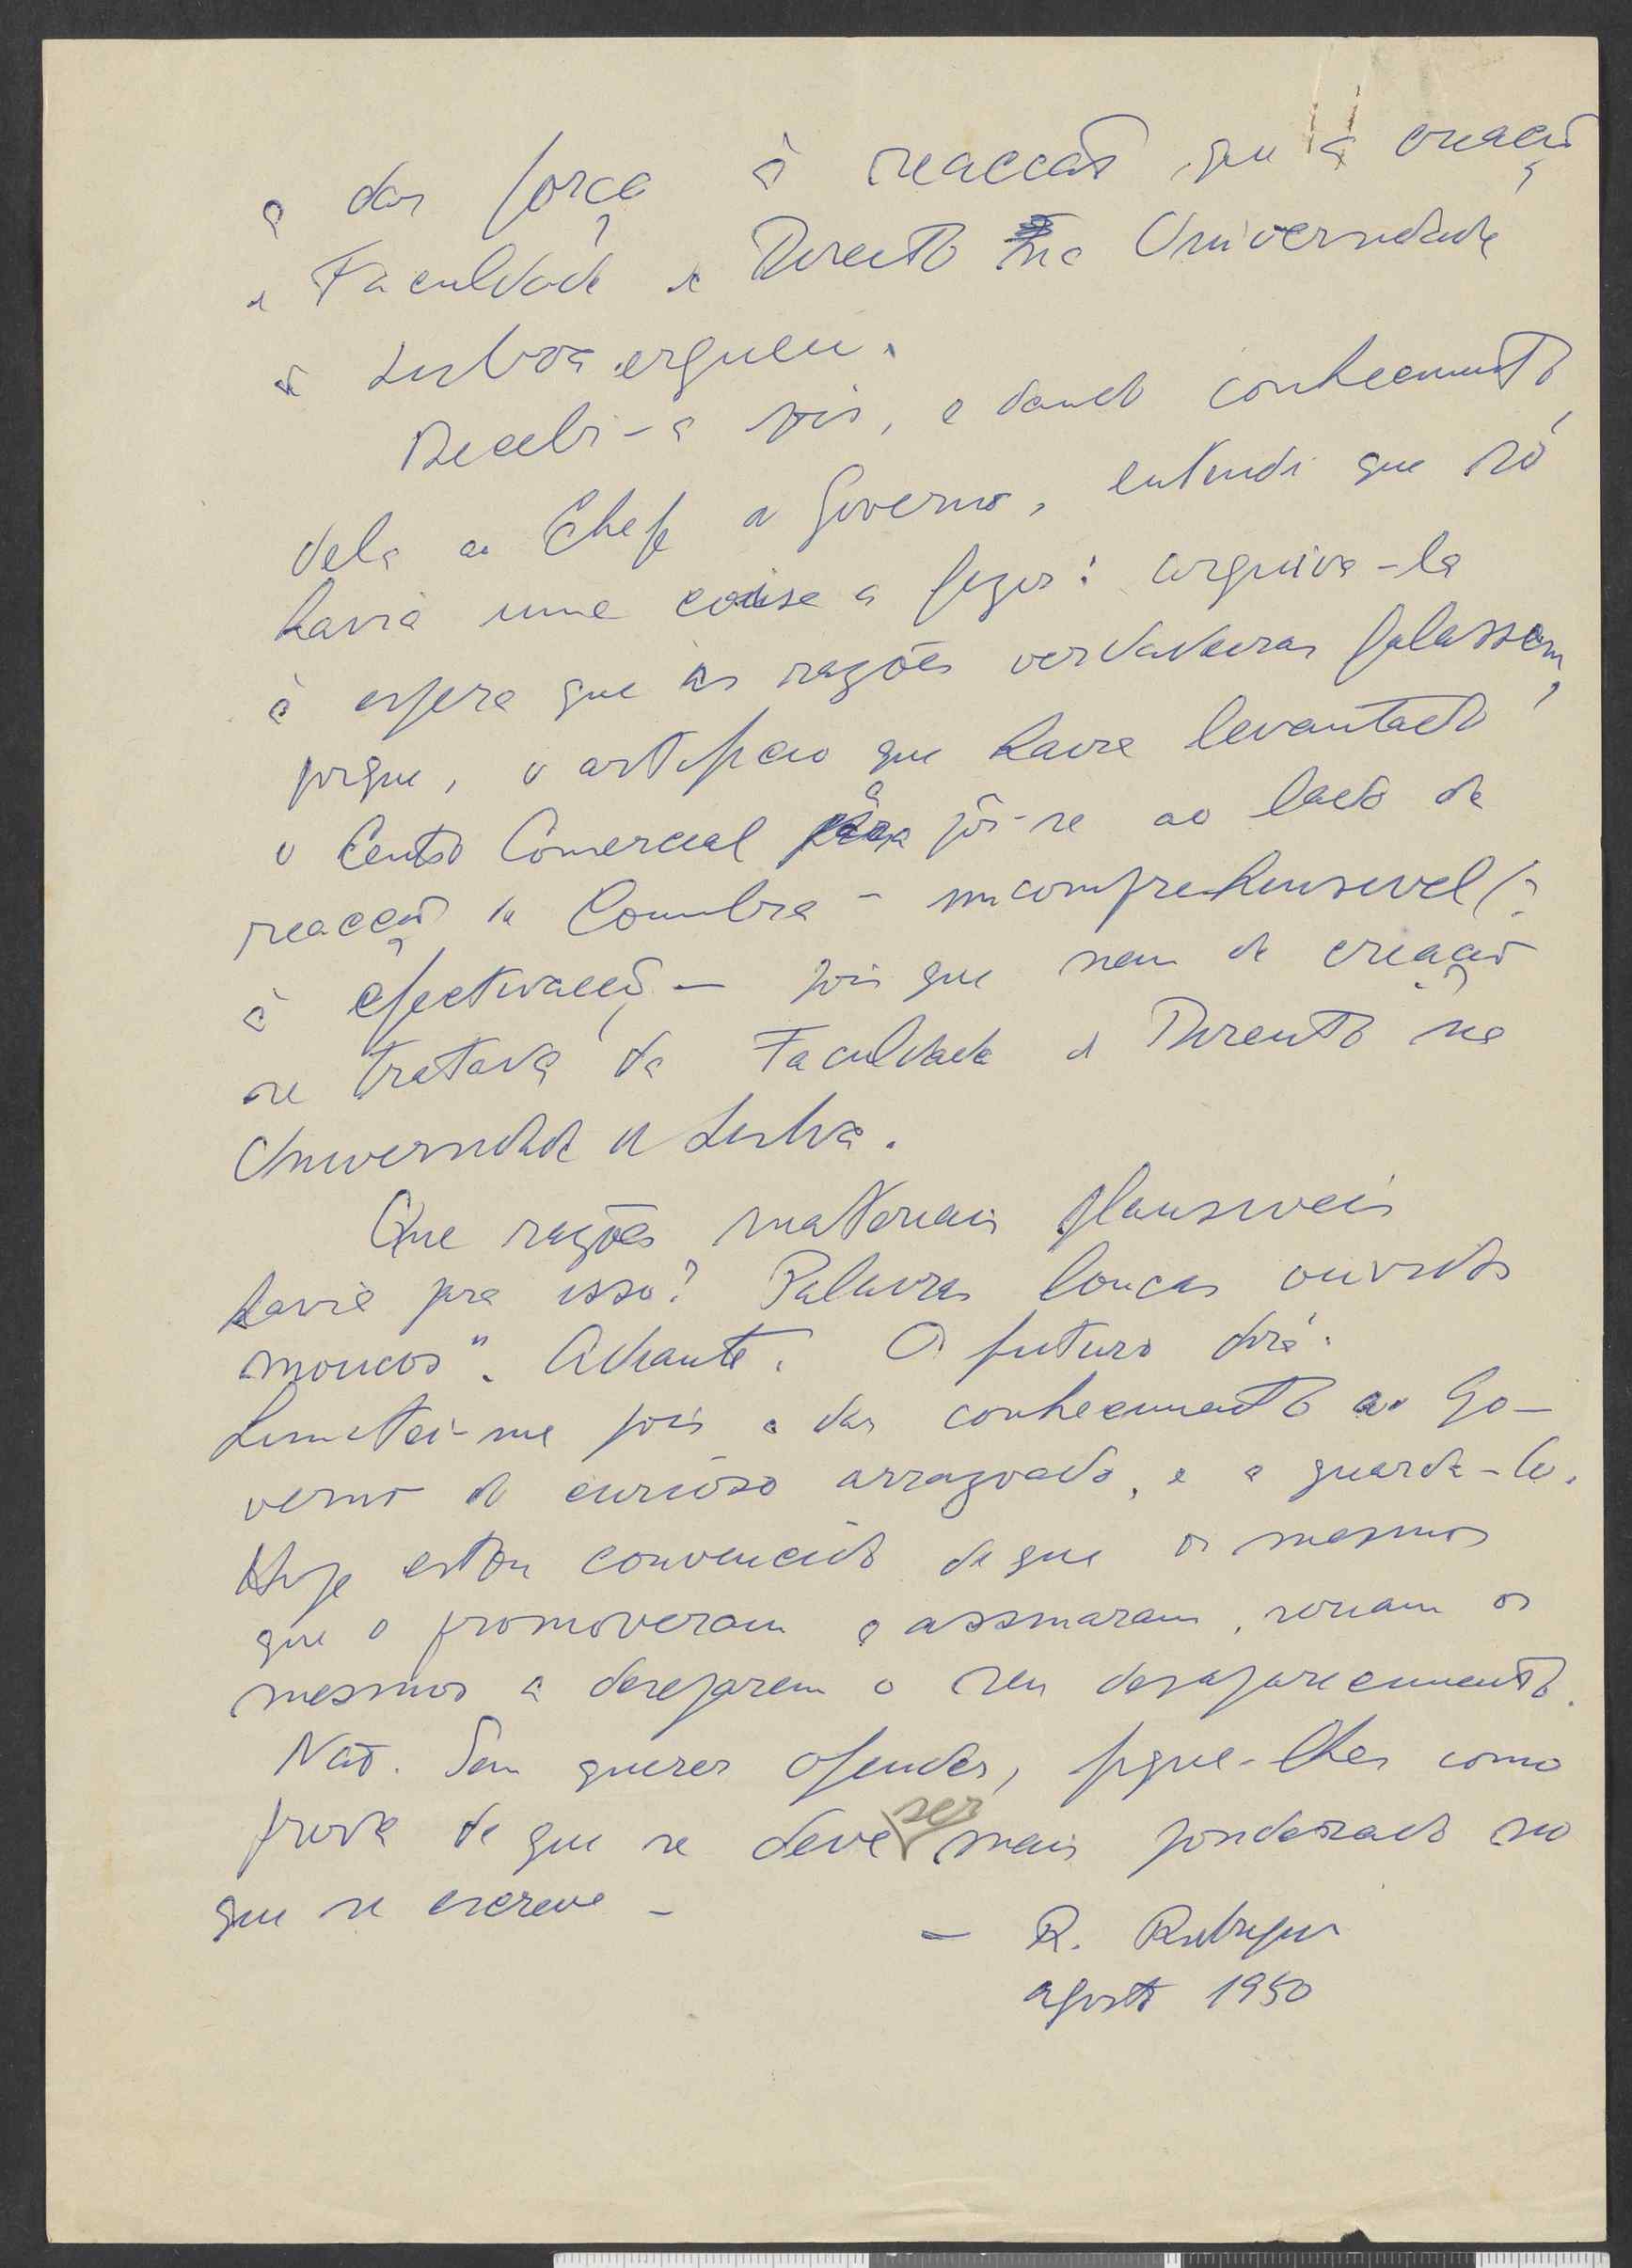 a dar força à reacção que a creação
de Faculdade de Direito na Universidade
de Lisboa ergueu.
Recebi-a pois, e dando conhecimento
dela ao Chefe do Governo, entendi que só
havia uma coisa a fazer: arquiva-la
à espera que as razões verdadeiras falassem,
porque, o artificio que havia levantado
o Centro Comercial a pôr-se ao lado da
reacção de Coimbra - incomprehensivel
à efectivação - pois que nem de creação
se tratava da Faculdade de Direito na
Universidade de Lisboa.
Que razões materiais plausiveis
havia pra isso? Palavras loucas ouvidos
moucos". Adiante. O futuro dirá.
Limitei-me pois a dar conhecimento ao Go-
verno do curioso arrazoado, e a guarda-lo.
Hoje estou convencido de que os mesmos
que o promoveram e assinaram, seriam os
mesmos a desejarem o seu desaparecimento.
Não. Sem querer ofender, fique-lhes como
prova de que se deve ser mais ponderado no
que se escreve -
- R.
agosto 1950